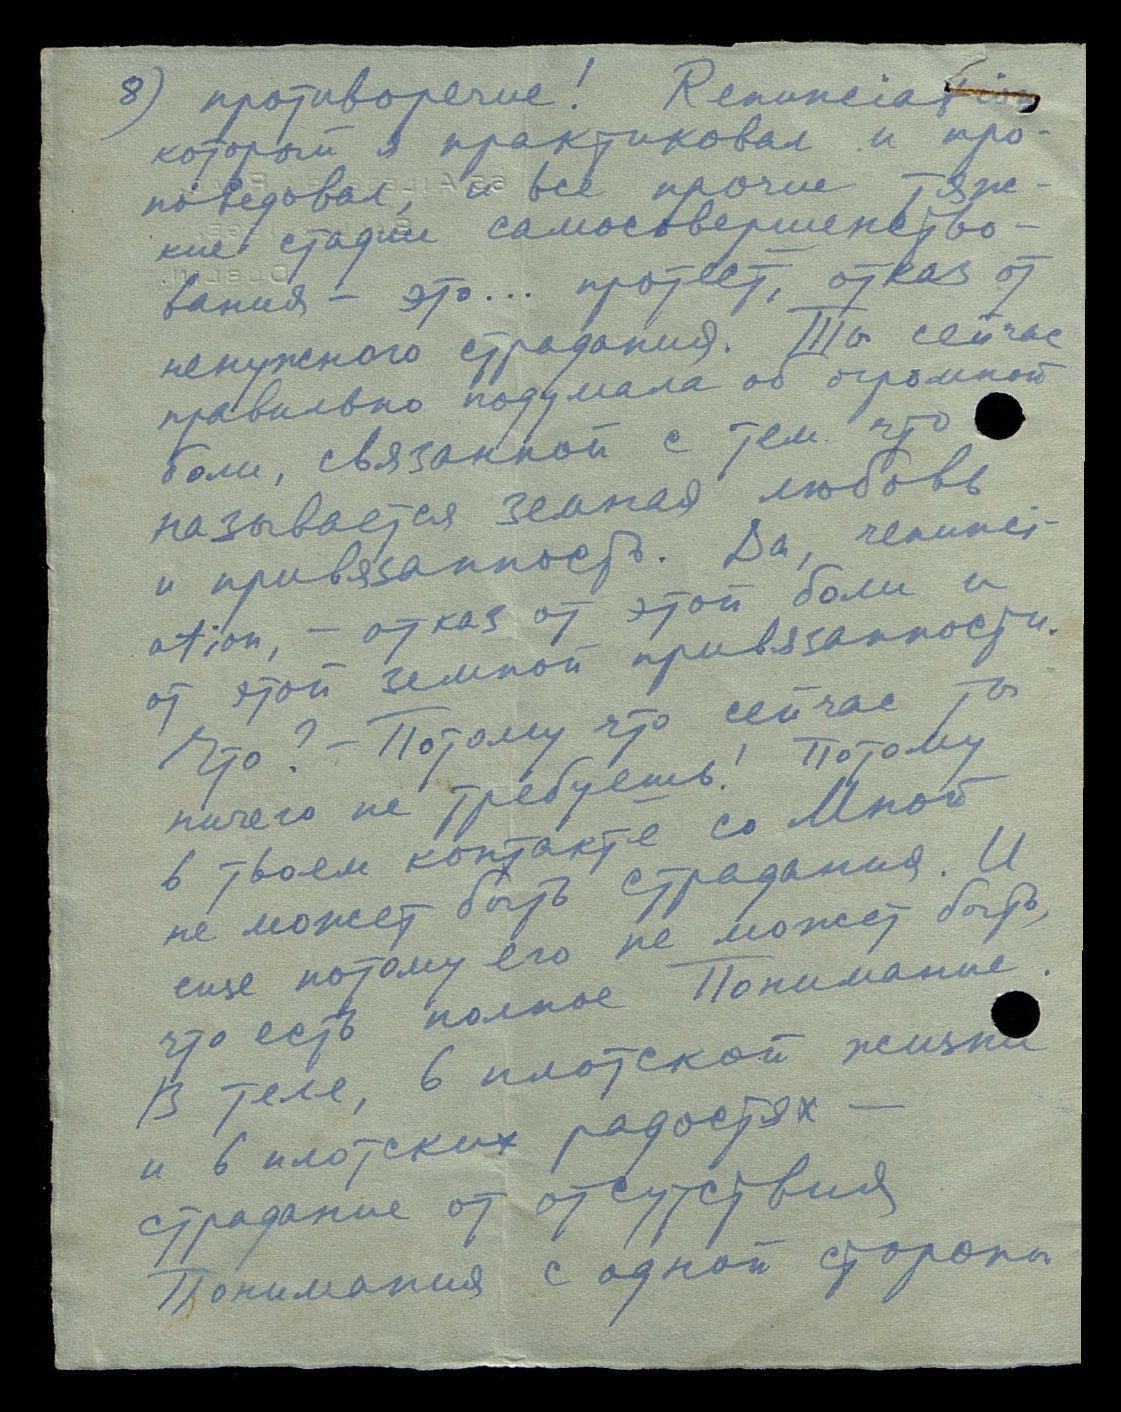 8) противоречие! Renunciation
который я практиковал и про-
поведовал, и все прочие тяж-
кие стадии самосовершенство-
вания – это... протест, отказ от
ненужного страдания. Ты сейчас
правильно подумала об огромной
боли, связанной с тем что
называется земная любовь
и привязанность. Да, renunci-
ation, – отказ от этой боли и
от этой земной привязанности.
Что? – Потому что сейчас ты
ничего не требуешь! Потому
в твоем контакте со Мной
не может быть страдания. И
еще потому его не может быть,
что есть полное Понимание.
В теле, в плотской жизни
и в плотских радостях –
страдание от отсутствия
Понимания с одной стороны